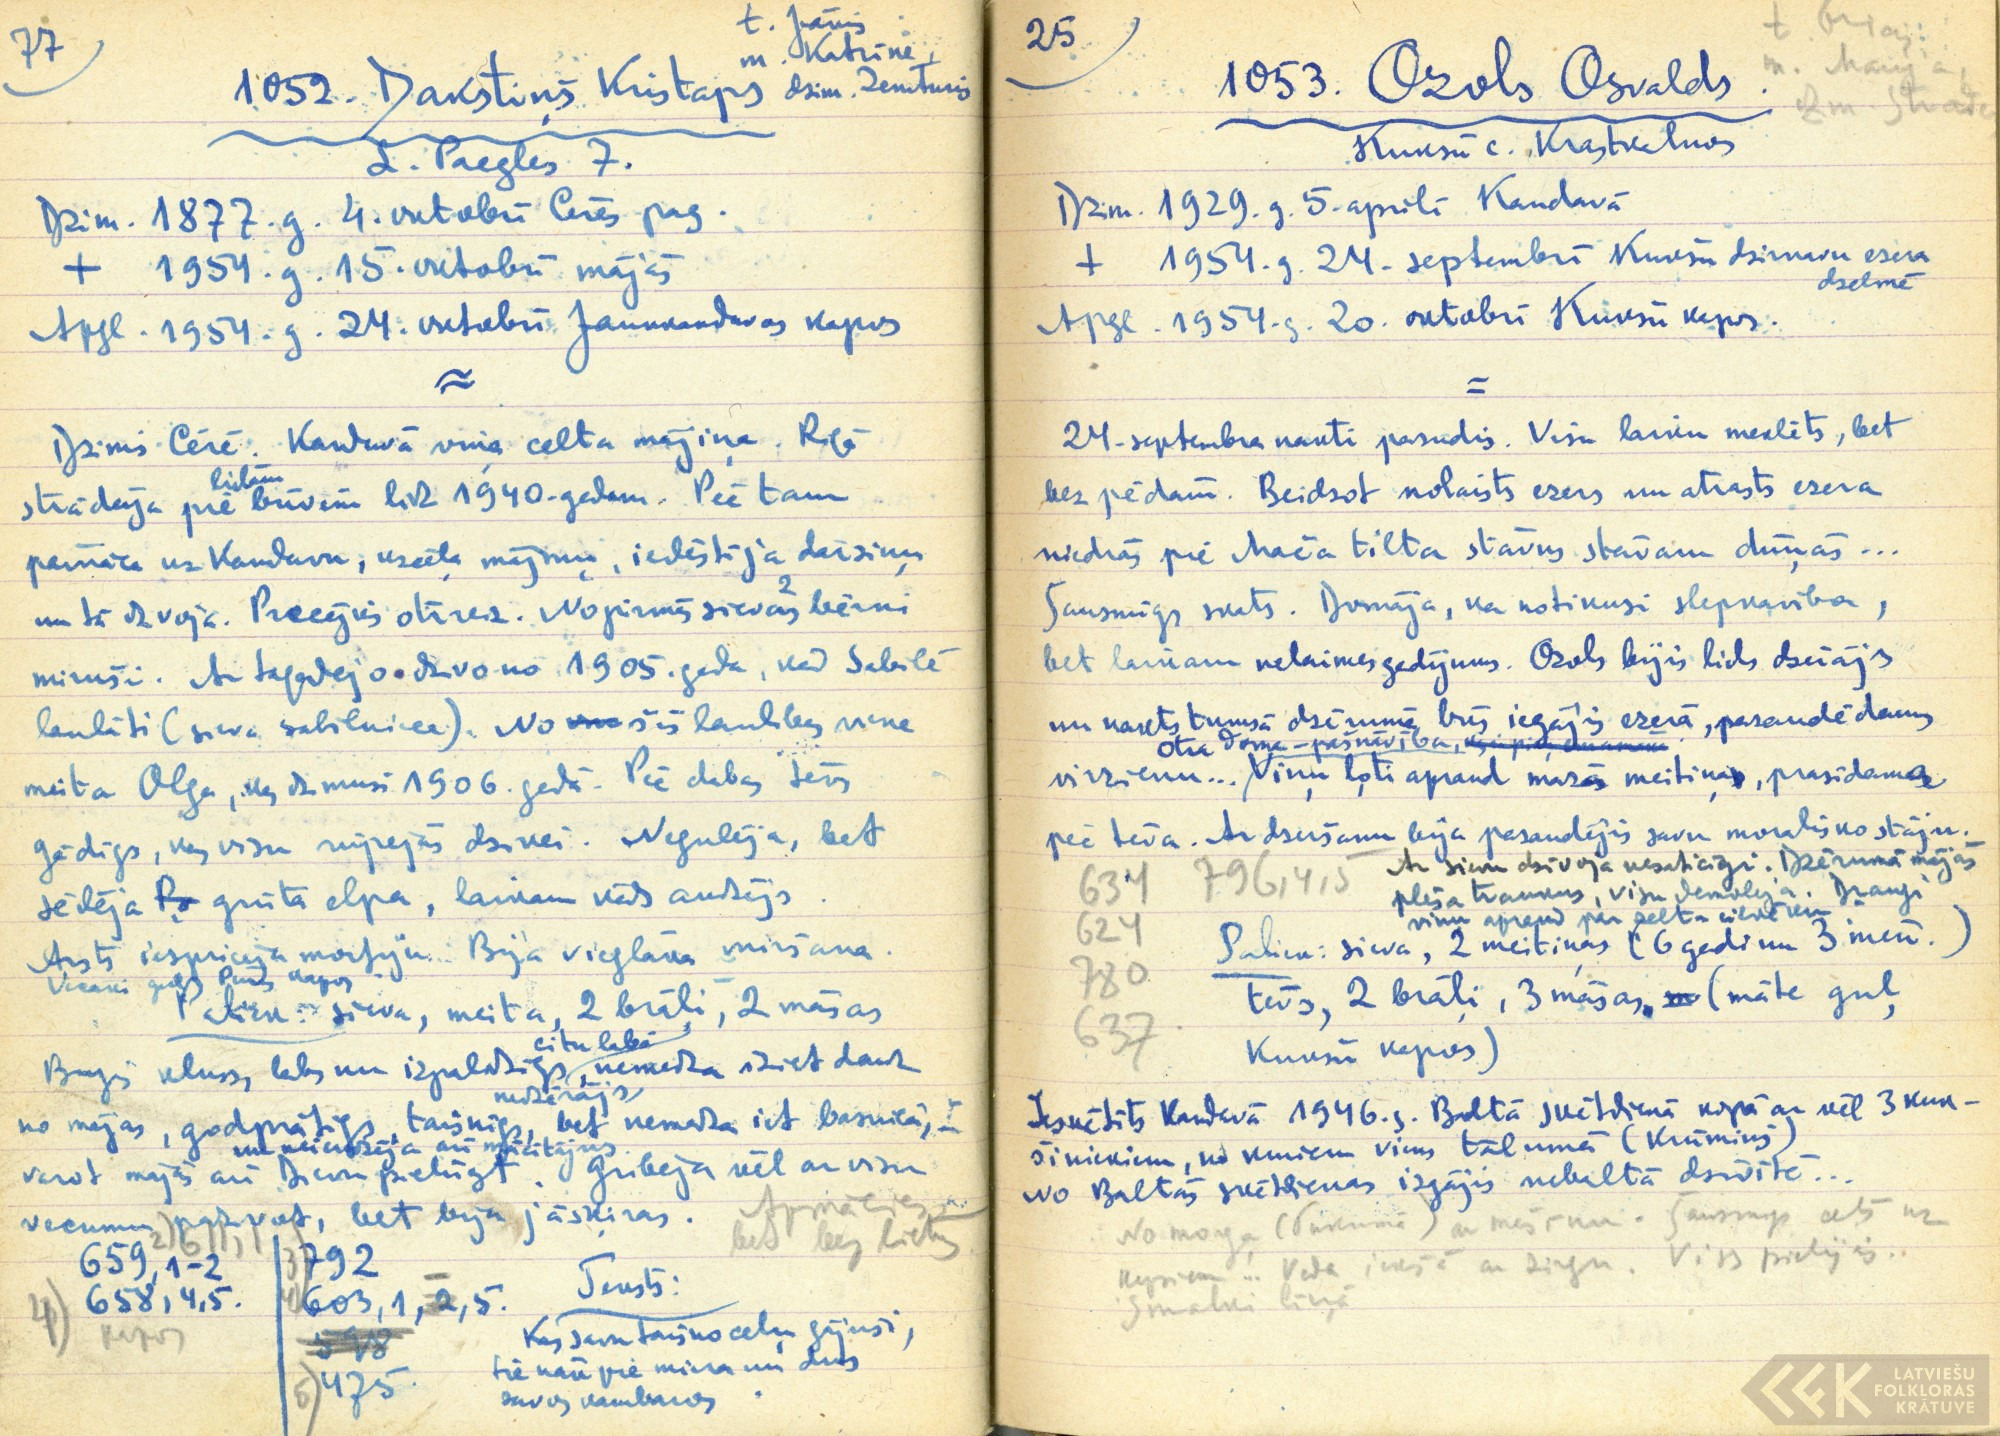 77
t. Jānis
m. Katrīne,
dzim. Zemturis
1052. Dakstiņš Kristaps
L. Paegles 7.
Dzim. 1877. g. 4. oktobrī Cēres pag.
+ 1954. g. 15. oktobrī mājās
Apgl. 1954. g. 24. oktobrī Jaunkandavas kapos
≈
Dzimis Cērē. Kandavā viņa celta mājiņa. Rīgā
lielām
strādāja pie būvēm līdz 1940. gadam. Pēc tam
pārnāca uz Kandavu, uzcēla mājiņu, iedēstīja dārziņu
un tā dzīvoja. Precējies otrreiz. No pirmās sievas 2 bērni
miruši. Ar tagadējo dzīvo no 1905. gada, kad Sabilē
laulāti (sieva sabilniece). No šīs laulības viena
meita Olga, kas dzimusi 1906. gadā. Pēc dabas tēvs
gādīgs, kas visu rūpējās dzīvei. Negulēja, bet
sēdēja grūta elpa, laikam kāds audzējs.
Ārsts iespricēja morfiju. Bija vieglāka miršana.
Vecāki guļ kapos
Paliek: sieva, meita, 2 brāļi, 2 māsas
citu labā
Bijis kluss, labs un izpalīdzīgs, nemēdza iziet daudz
nedzērājs
no mājas, godprātīgs, taisnīgs, bet nemēdza iet baznīcā,
un neieredzēja arī mācītājus
varot mājās arī Dievu pielūgt. Gribēja vēl ar visu
vecumu padzīvot, bet bija jāšķiras.
Apmācies
bet bez lietus
659, 1-2
658, 4,5.
4)
kapos
3) 792
4) 603, 1, 2, 5.
5) 475.
Teksts:
Kas savu taisno ceļu gājuši,
tie nāk pie miera un dus
savos kambaros.
25
m. Marija,
1053. Ozols Osvalds.
Kukšu c. Krastkalnos
Dzim. 1929. g. 5. aprīlī Kandavā
+ 1954. g. 24. septembrī Kukšu dzirnavu ezera
dzelmē
Apgl. 1954. g. 20. oktobrī Kukšu kapos.
=
24. septembra naktī pazudis. Visu laiku meklēts, bet
bez pēdām. Beidzot nolaists ezers un atrasts ezera
niedrās pie Mača tilta stāvus stāvam dūņās...
Šausmīgs skats. Domāja, ka notikusi slepkavība,
bet laikam nelaimes gadījums. Ozols bijis liels dzērājs
un nakts tumsā dzērumā būs iegājis ezerā, pazaudēdams
Otra doma - pašnāvība,
virzienu... Viņu ļoti apraud mazās meitiņas, prasīdamas
pēc tēva. Ar dzeršanu bija pazaudējis savu morālisko stāju.
Ar sievu dzīvoja nesaticīgi. Dzērumā mājās
plēsa traukus, visu demolēja. Draugi
viņu apraud par zelta cilvēku
634 796,4,5
624
780
637
Paliek: sieva, 2 meitiņas (6 gadi un 3 mēn.)
tēvs, 2 brāļi, 3 māsas, (māte guļ
Kukšu kapos)
Iesvētīts Kandavā 1946. g. Baltā svētdienā kopā ar vēl 3 kuk-
šiniekiem, no kuriem viens tālumā (Krūmiņš)
No Baltās svētdienas izgājis nebaltā dzīvītē...
No morga (Tukumā) ar mašīnu. Šausmīgs ceļš uz
kapiem... Veda iekšā ar zirgu. Viss pielijis..
Smalki līņā
LATVIEŠU
FOLKLORAS
KRĀTUVE